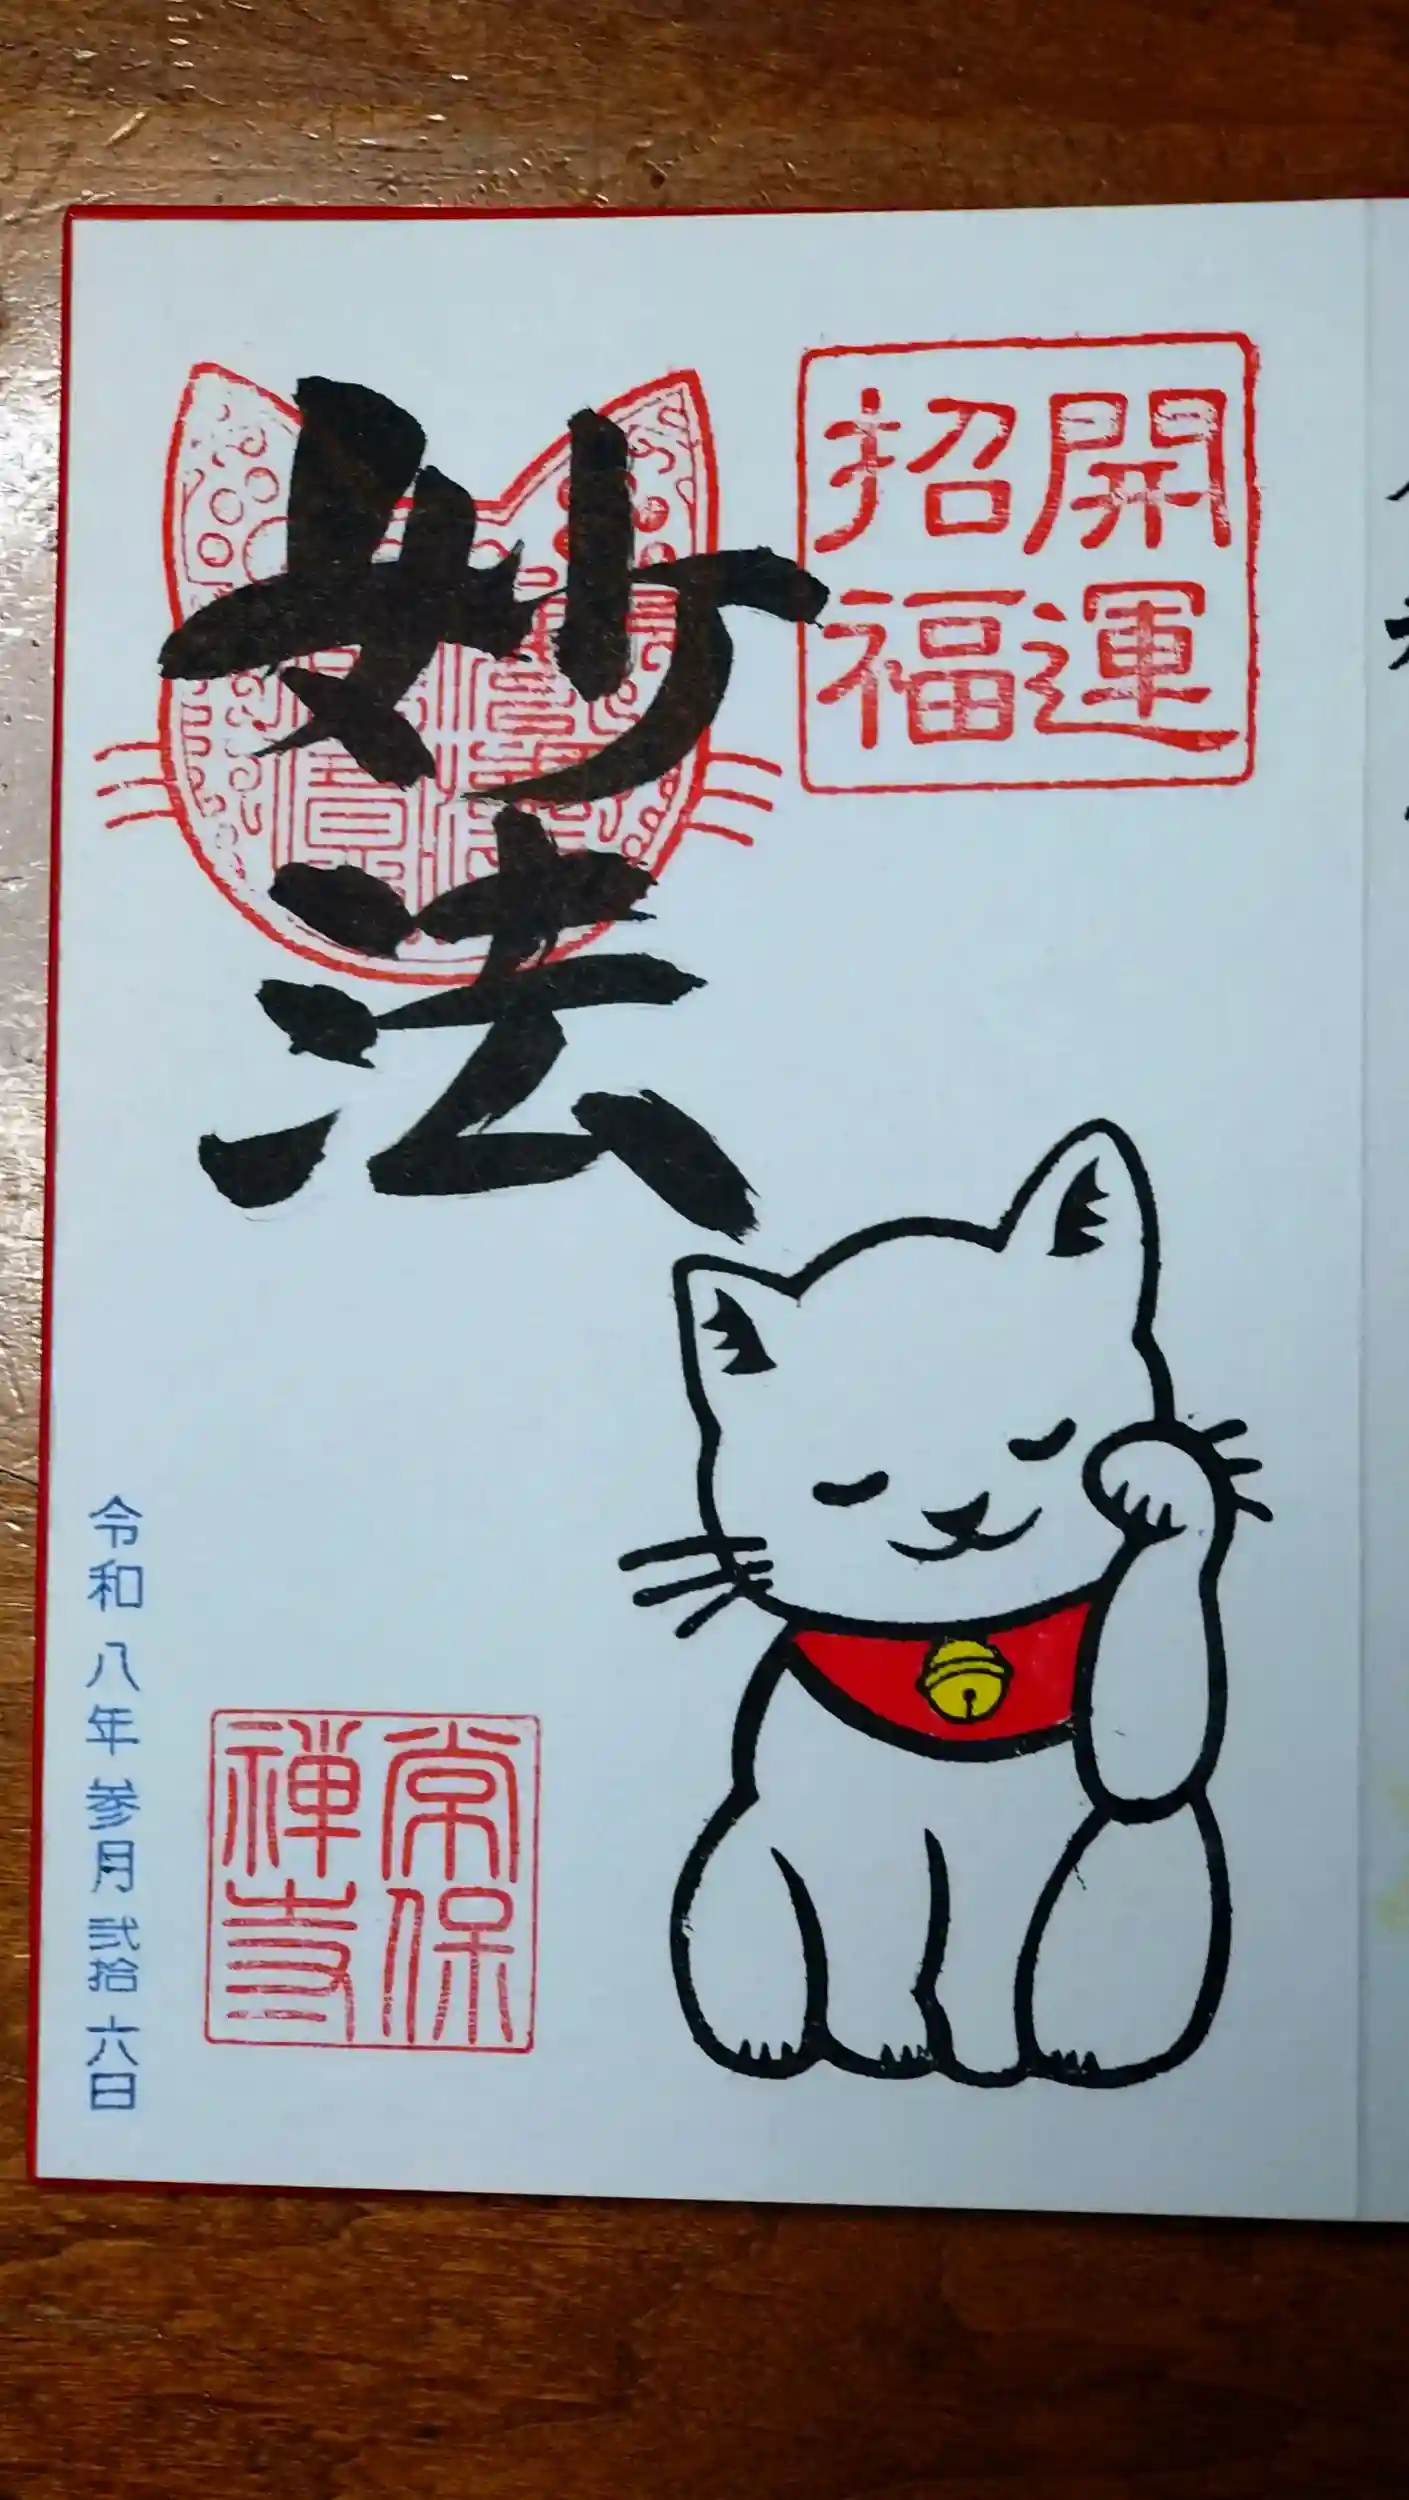 開運
招福
妙法
常保
禅寺
令和八年参月弐拾六日